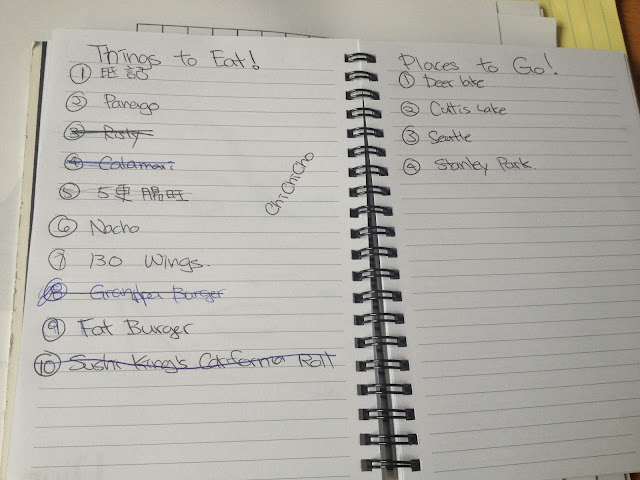 Things to Eat!
① 旺記
② Panago
③ Roty
④ Calamari
⑤ 5更腸旺
⑥ Nacho
⑦ 130 Wings.
⑧ Grandpa Burger
⑨ Fat Burger
⑩ Sushi King's California Roll
Chi Chi Cho
Places to Go!
① Deer lake
② Cultis Lake
③ Seattle
④ Stanley Park.